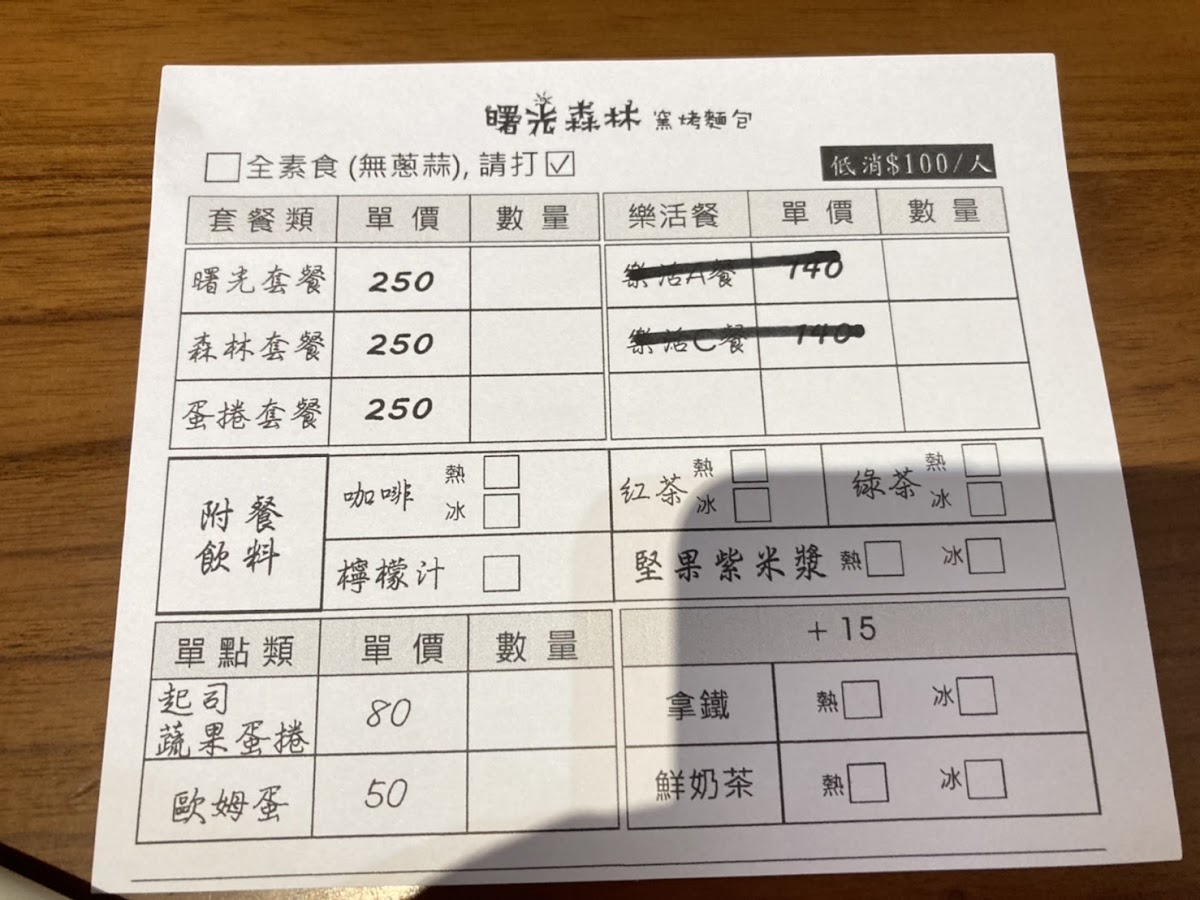 曙光森林 窯烤麵包
全素食 (無蔥蒜), 請打☑ 低消$100/人
套餐類 單價 數量 樂活餐 單價 數量
曙光套餐 250 樂活A餐 140
森林套餐 250 樂活C餐 140
蛋捲套餐 250
附餐飲料
咖啡 熱 冰 紅茶 熱 冰 綠茶 熱 冰
檸檬汁 堅果紫米漿 熱 冰
單點類 單價 數量 +15
起司
蔬果蛋捲 80 拿鐵 熱 冰
歐姆蛋 50 鮮奶茶 熱 冰